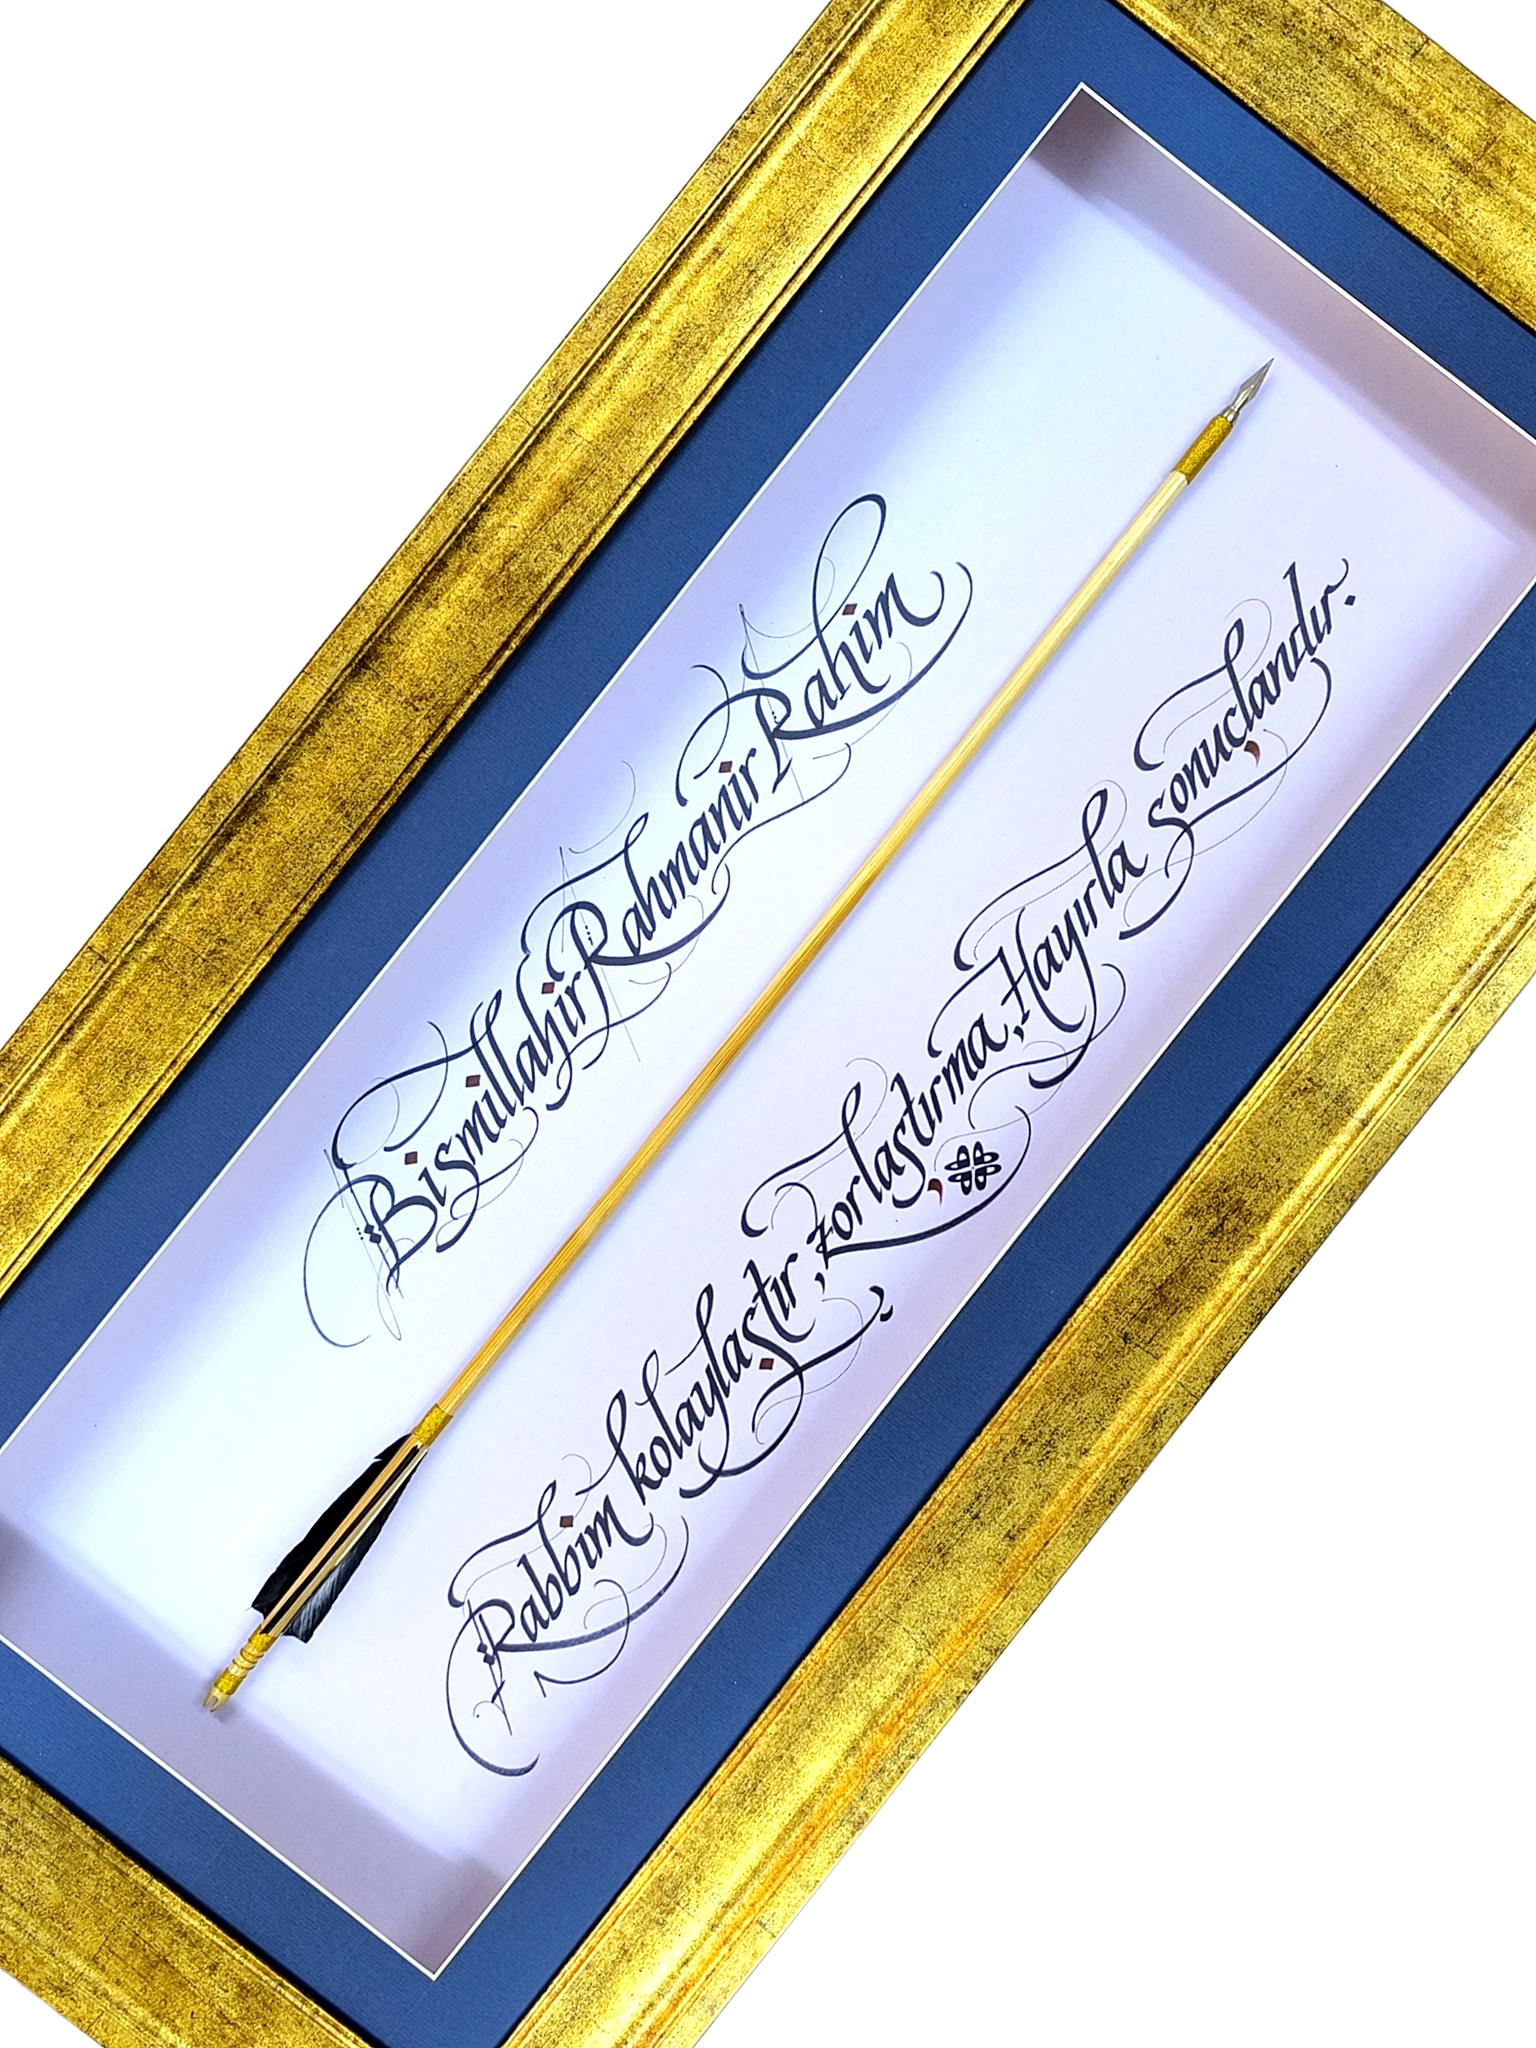 Bismillahir Rahmanir Rahim
Rabbim kolaylaştır, zorlaştırma, Hayırla sonuçlandır.